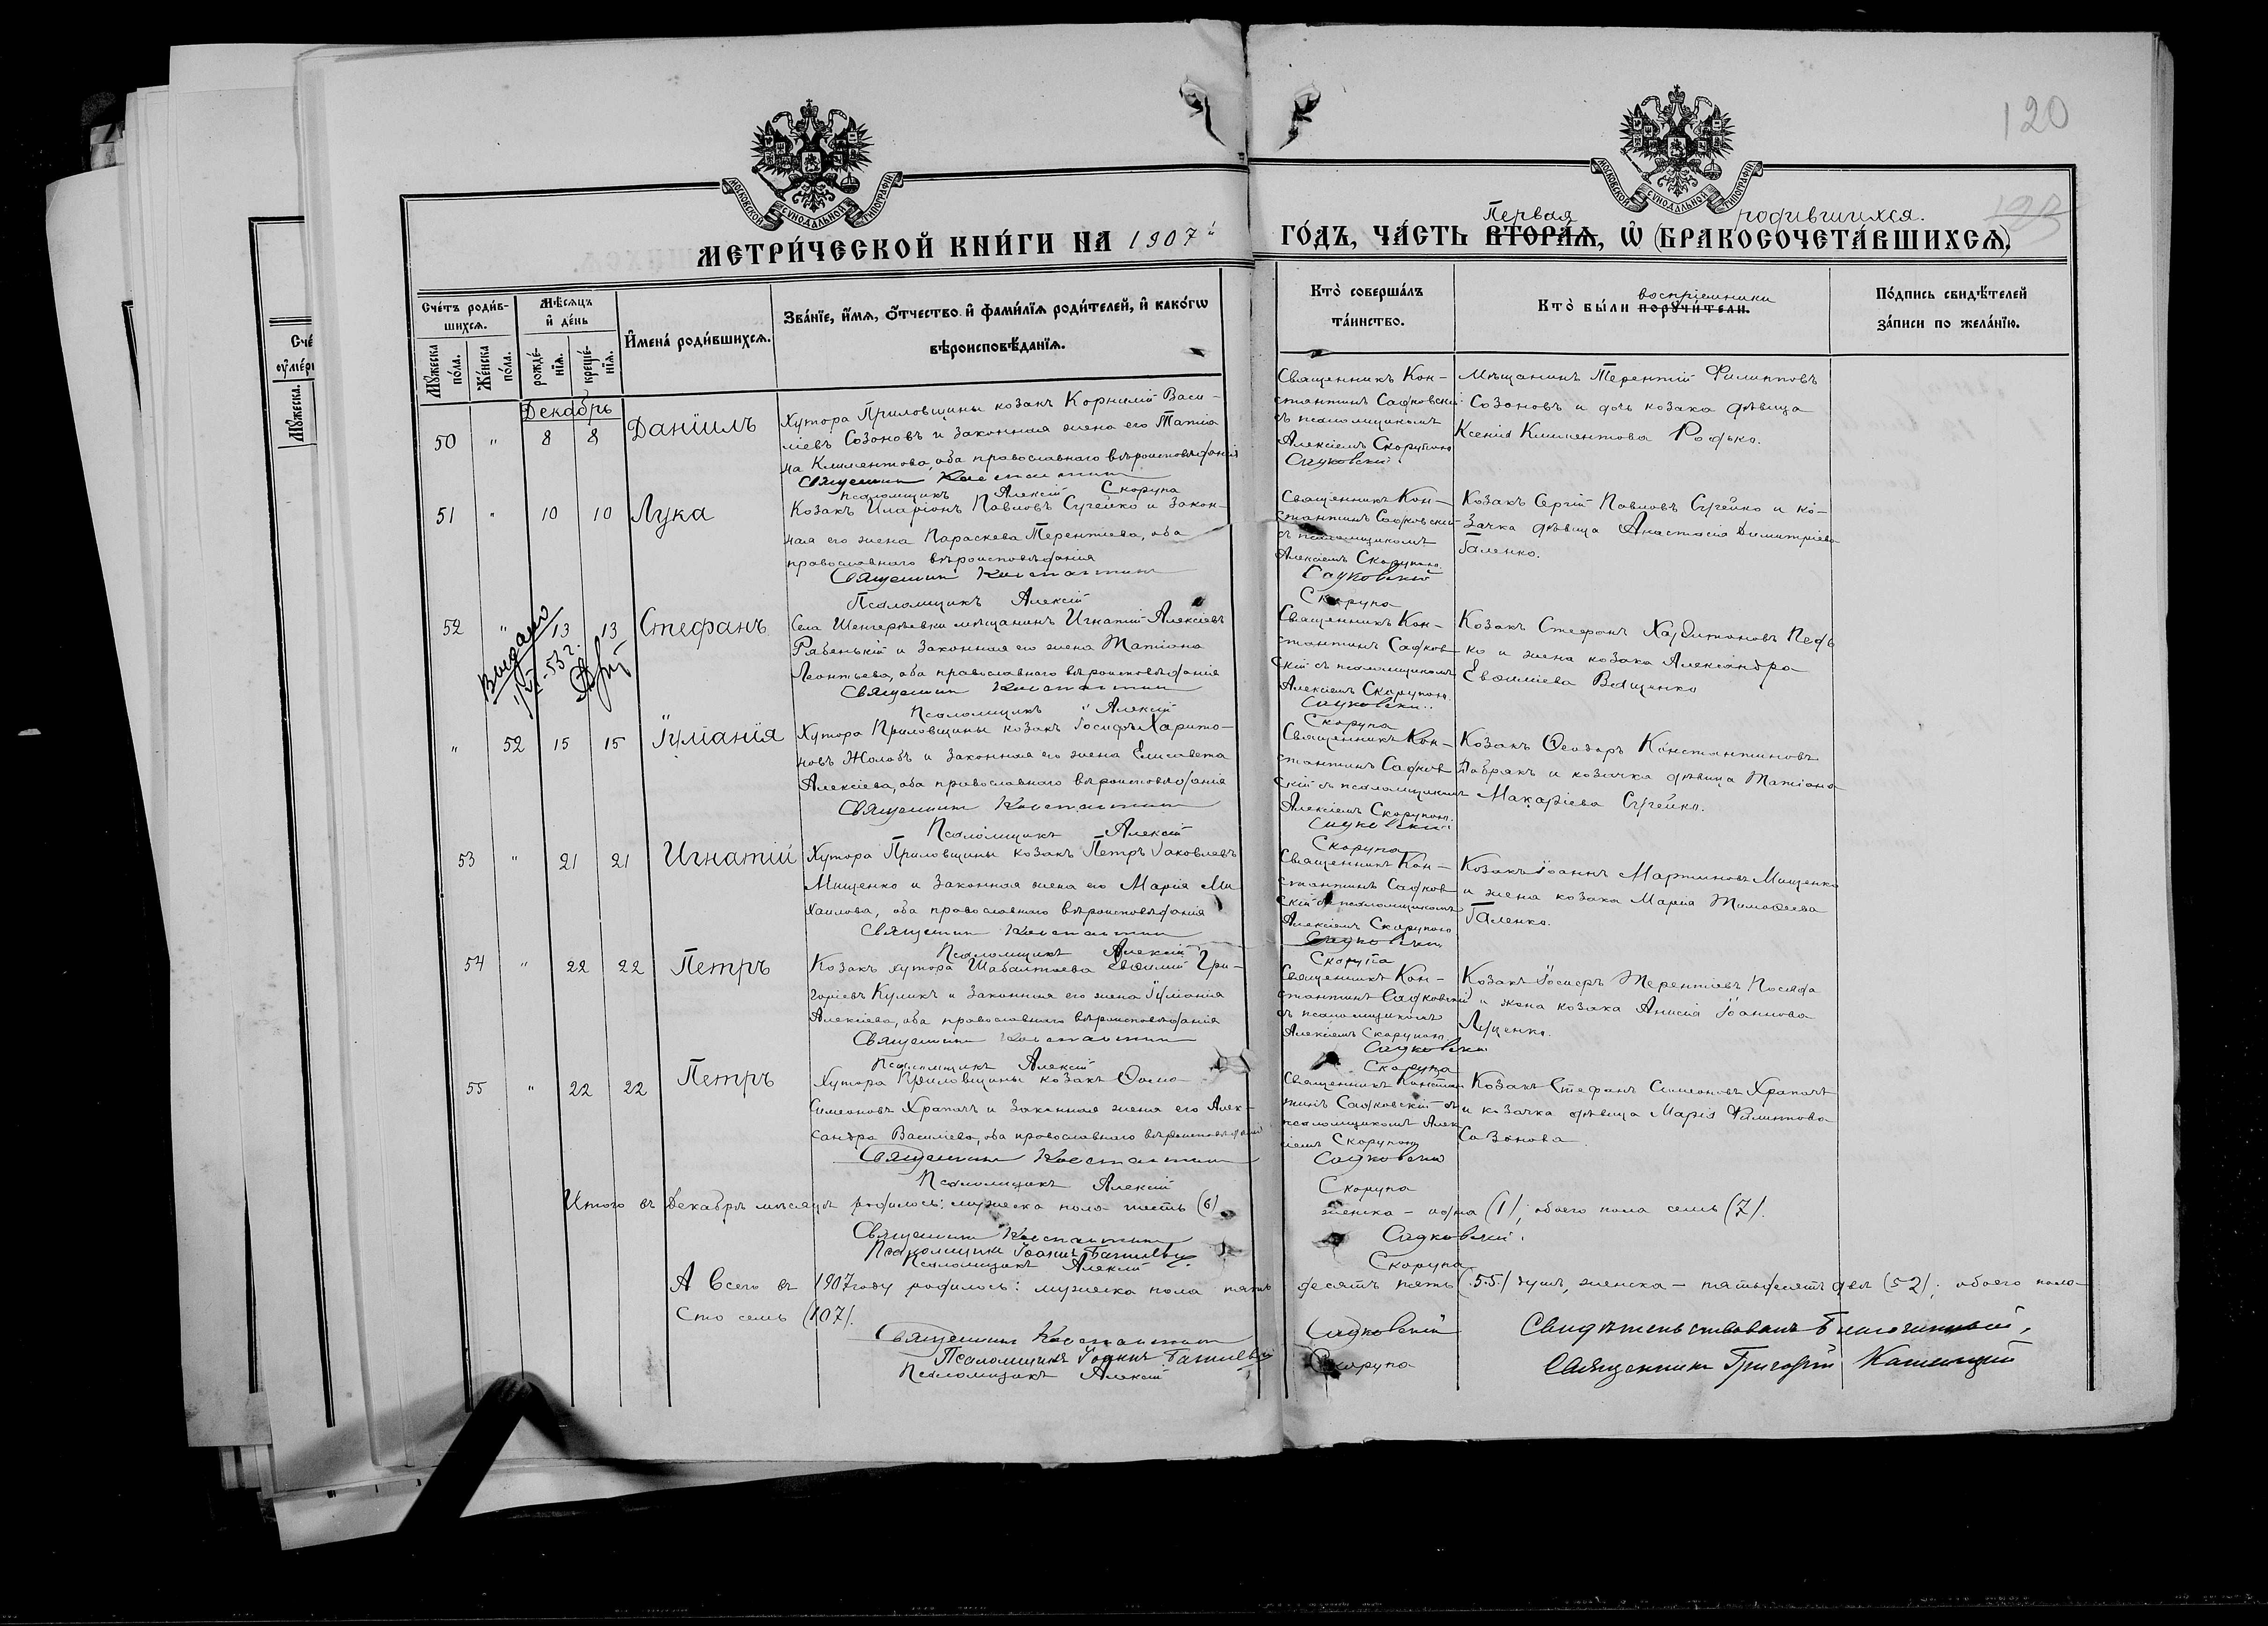 120
МОСКОВСКОЙ СѴНОДАЛЬНОЙ ТИПОГРАФІИ
МОСКОВСКОЙ СѴНОДАЛЬНОЙ ТИПОГРАФІИ
Первая
родившихся.
МЕТРИ́ЧЕСКОЙ КНИ́ГИ НА 1907й
ГО́ДЪ, ЧА́СТЬ ВТОРА́Я, Ѡ (БРАКОСОЧЕТА́ВШИХСЯ).
Сче́тъ роди́в-
шихся.
Му́жеска по́ла.
Же́нска по́ла.
Мѣ́сяцъ
и҆ де́нь
рожде́-
нія.
креще́-
нія.
И҆мена̀ роди́вшихся.
Зва́ніе, и҆́мя, ѻ҆́тчество и҆ фами́лія роди́телей, и҆ како́гѡ
вѣроисповѣ́данія.
Кто̀ соверша́лъ
та́инство.
воспріемники
Кто̀ бы́ли порꙋчи́тели.
По́дпись свидѣ́телей
за́писи по жела́нію.
Декабрь
50 " 8 8 Даніилъ
Хутора Приловщины козакъ Корнилій Васи-
ліевъ Созоновъ и законная жена его Татіа
на Климентова, оба православнаго вѣроисповѣданія
Священникъ Константинъ
Псаломщикъ Алексій Скорупа
Священникъ Кон-
стантинъ Садковскій
съ псаломщикомъ
Алексіемъ Скорупою
Садковскій.
Мѣщанинъ Терентій Филипповъ
Созоновъ и дочь козака дѣвица
Ксенія Климентова Родько.
51 " 10 10 Лука
Козакъ Иларіонъ Павловъ Сугейко и закон-
ная его жена Параскева Терентіева, оба
православнаго вѣроисповѣданія
Священникъ Константинъ
Псаломщикъ Алексій
Священникъ Кон-
стантинъ Садковскій
съ псаломщикомъ
Алексіемъ Скорупою
Садковскій
Скорупа
Козакъ Сергій Павловъ Сугейко и ко-
зачка дѣвица Анастасія Димитріева
Галенко.
52 " 13 13 Стефанъ
Выдано
53 г.
Села Шенгерѣевки мѣщанинъ Игнатій Алексіевъ
Рабенькій и законная его жена Татіана
Леонтьева, оба православнаго вѣроисповѣданія
Священникъ Константинъ
Псаломщикъ Алексій
Священникъ Кон-
стантинъ Садков
скій съ псаломщикомъ
Алексіемъ Скорупою.
Садковскій.
Скорупа
Козакъ Стефанъ Харитоновъ Педь
ко и жена козака Александра
Евѳиміева Ващенко
" 52 15 15 Іуліанія
Хутора Приловщины козакъ Іосифъ Харито-
новъ Жолобъ и законная его жена Елисавета
Алексіева, оба православнаго вѣроисповѣданія
Священникъ Константинъ
Псаломщикъ Алексій
Священникъ Кон-
стантинъ Садков
скій съ псаломщикомъ
Алексіемъ Скорупою.
Садковскій
Скорупа
Козакъ Ѳеодоръ Константиновъ
и козачка дѣвица Татіана
Макаріева Сугейко.
53 " 21 21 Игнатій
Хутора Приловщины козакъ Петръ Іаковлевъ
Мищенко и законная жена его Марія Ми
хаилова, оба православнаго вѣроисповѣданія
Священникъ Константинъ
Псаломщикъ Алексій
Священникъ Кон-
стантинъ Садков
скій съ псаломщикомъ
Алексіемъ Скорупою
Садковскій
Скорупа
Козакъ Іоаннъ Мартиновъ Мищенко
и жена козака Марія Тимоѳеева
Галенко.
54 " 22 22 Петръ
Козакъ хутора Шабалтаева Евѳимій Гри-
горіевъ Куликъ и законная его жена Іуліанія
Алексіева, оба православнаго вѣроисповѣданія
Священникъ Константинъ
Псаломщикъ Алексій
Священникъ Кон-
стантинъ Садковскій
съ псаломщикомъ
Алексіемъ Скорупою
Садковскій
Скорупа
Козакъ Іосифъ Терентіевъ Посяда
и жена козака Анисія Іоаннова
Луценко.
55 " 22 22 Петръ
Хутора Приловщины козакъ Ѳома
Симеоновъ Храпачъ и законная жена его Алек-
сандра Василіева, оба православнаго вѣроисповѣданія
Священникъ Константинъ
Псаломщикъ Алексій
Священникъ Констан
тинъ Садковскій съ
псаломщикомъ Алек
сіемъ Скорупою
Садковскій
Скорупа
Козакъ Стефанъ Симеоновъ Храпачъ
и козачка дѣвица Марія Филиппова
Созонова.
Итого въ Декабрѣ мѣсяцѣ родилось: мужеска пола шесть (6), женска – одна (1), обоего пола семь (7).
Священникъ Константинъ Садковскій.
Псаломщикъ Іоаннъ
Псаломщикъ Алексій Скорупа
А всего въ 1907 году родилось: мужеска пола пять десятъ пять (55) душъ, женска – пятьдесятъ двѣ (52); обоего пола
сто семь (107).
Священникъ Константинъ Садковскій
Псаломщикъ Іоаннъ
Псаломщикъ Алексій Скорупа
Свидѣтельствовалъ Благочинный,
Священникъ Григорій